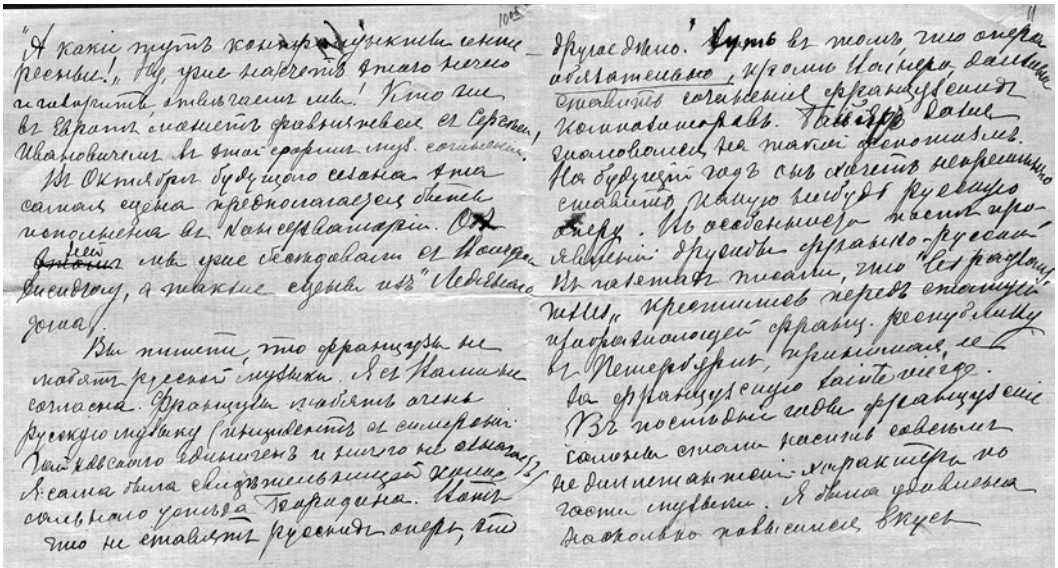 10об
"А какiе тутъ контрапунктивы инте
ресныи!„ Ну, ужъ насчетъ этого нечего
и говорить отвѣчаемъ мы! Кто же
въ Европѣ можетъ сравняться съ Сергѣемъ
Ивановичемъ въ этой формѣ муз. сочиненiя.
Въ Октябрѣ будущаго сезона эта
самая сцена предполагается быть
исполнена въ Консерваторiи. Объ
ней мы уже бесѣдовали съ
а также сцены изъ "Ледяного
дома„.
Вы пишете, что французы не
любятъ русской музыки. Я съ Вами не
согласна. Французы любятъ очень
русскую музыку (инцидентъ съ симфонiей
Чайковскаго единиченъ и ничего не означаетъ)
Я сама была свидѣтельницей
успѣха Бородина. Хотя
что не ставятъ русскихъ оперъ, это
11
другое дѣло! Суть въ томъ что опера
обязательно, кромѣ Вагнера должна
ставить сочиненiя французскихъ
композиторовъ. даже
жаловался на такой
На будущiй годъ сынъ хочетъ непремѣнно
ставить какую нибудь русскую
оперу. Въ особенности послѣ про
явленiй дружбы франко-русской
Въ газетахъ писали, что "les
крестились передъ статуей
изображающей франц. республику
въ Петербургѣ, принимая ее
за французскую sainte vierge.
Въ послѣднiе годы французскiе
салоны стали носить совсѣмъ
не дилетантскiй характеръ по
части музыки. Я была удивлена
насколько повысился вкусъ